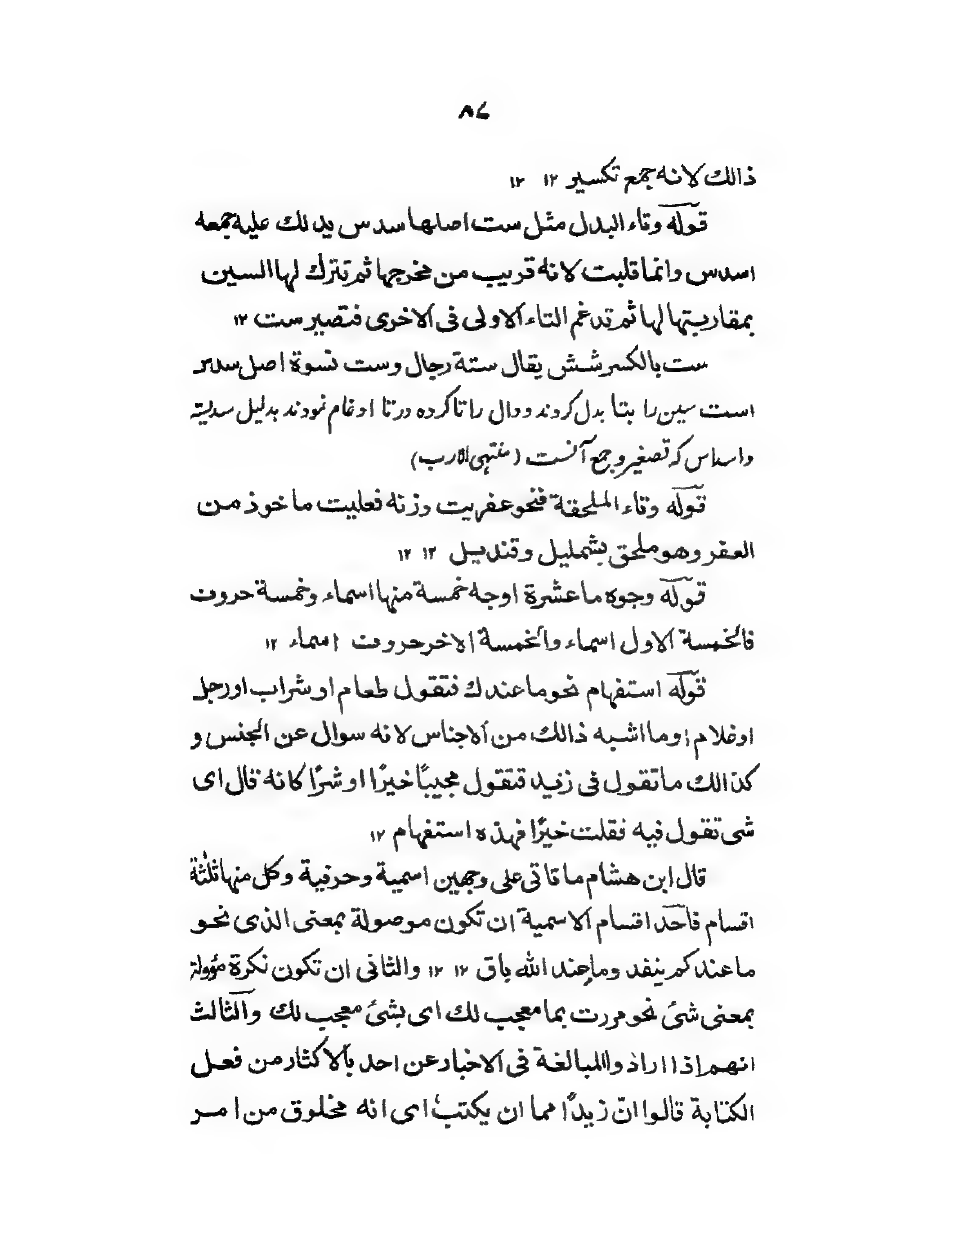 ٨٤
ذالك لانه جمع تكسير ١٢ ١٢
قوله وتاء البدل مثل ست اصلها سدس يدلك عليه جمعه
اسدس وانما قلبت لانه قريب من مخرجها ثم تترك لها السين
بمقاربتها لها ثم تدغم التاء الاولى فى الاخرى فتصير ست ١٢
ست بالكسر شش يقال ستة رجال وست نسوة اصل سدس
است سين را بتا بدل كردند ودال را تا كرده درتا ادغام نمودند بدليل سديسة
واسداس كه تصغير و جمع آنست (منتهى الارب)
قوله وتاء الملحقة فنحو عفريت وزنه فعليت ماخوذ من
العفر وهو ملحق بشمليل وقنديل ١٢ ١٢
قوله وجوه ما عشرة اوجه خمسة منها اسماء وخمسة حروف
فالخمسة الاول اسماء والخمسة الاخر حروف اسماء ١٢
قوله استفهام نحو ما عندك فتقول طعام او شراب اور جل
او غلام او ما اشبه ذالك من الاجناس لانه سوال عن الجنس و
كذالك ما تقول فى زيد فتقول مجيبًا خيرًا او شرًا كانه قال اى
شى تقول فيه فقلت خيرًا فهذه استفهام ١٢
قال ابن هشام ما تاتى على وجهين اسمية وحرفية وكل منها ثلٰثة
اقسام فاحد اقسام الاسمية ان تكون موصولة بمعنى الذى نحو
ما عندكم ينفد وما عند الله باق ١٢ ١٢ والثانى ان تكون نكرة مؤولة
بمعنى شئ نحو مررت بما معجب لك اى بشئ معجب لك والثالث
انهم اذا ارادوا المبالغة فى الاخبار عن احد بالاكثار من فعل
الكتابة قالوا انّ زيدًا مما ان يكتب اى انه مخلوق من امر